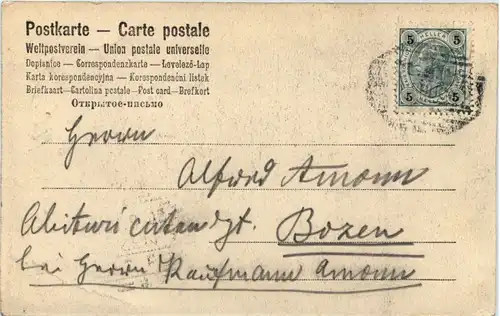 Postkarte — Carte postale
Weltpostverein — Union postale universelle
Dopisnice — Correspondenzkarte — Levelező-Lap
Karta korespondencyjna — Korespondenčni listek
Briefkaart — Cartolina postale — Post card — Brefkort
Открытое письмо
5 HELLER 5
5 5
Herrn
Alfred Amonn
Abiturientan dzt. Bozen
bei Herrn Kaufmann Amonn